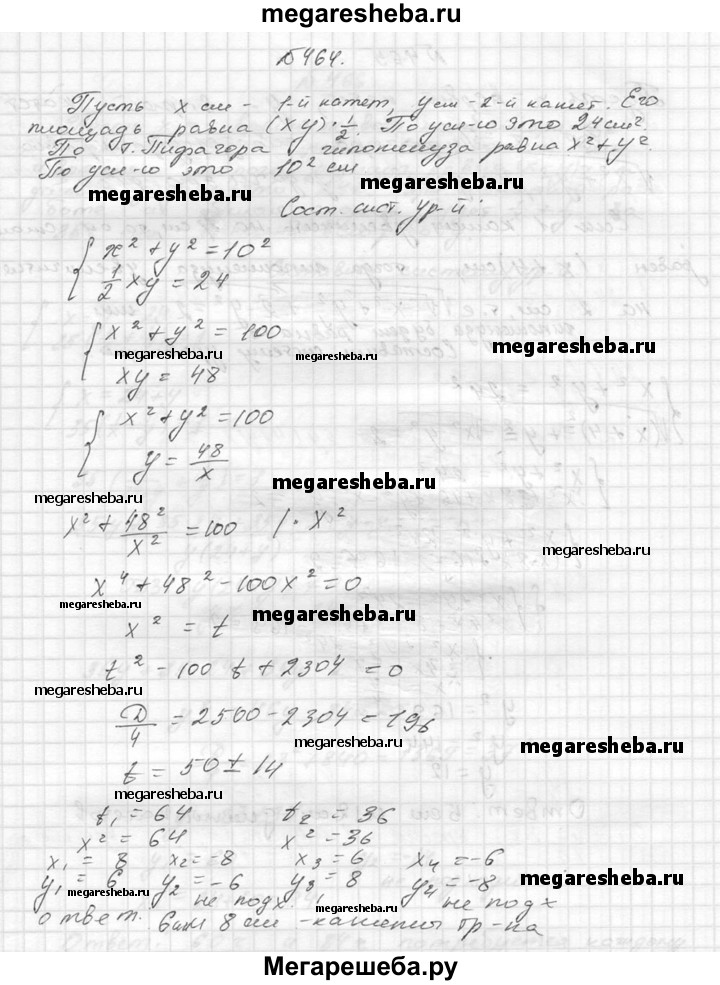 megaresheba.ru
№464.
Пусть x см - 1-й катет, y см - 2-й катет. Его
площадь равна (xy)·1/2. По усл-ю это 24 см²
По т. Пифагора гипотенуза равна x²+y².
По усл-ю это 10² см
megaresheba.ru megaresheba.ru
Сост. сист. ур-й:
{ x² + y² = 10²
{ 1/2 xy = 24
{ x² + y² = 100
megaresheba.ru megaresheba.ru megaresheba.ru
{ xy = 48
{ x² + y² = 100
{ y = 48/x
megaresheba.ru
megaresheba.ru
x² + 48²/x² = 100 /· x²
megaresheba.ru
x⁴ + 48² - 100x² = 0
megaresheba.ru megaresheba.ru
x² = t
t² - 100 t + 2304 = 0
megaresheba.ru
D/4 = 2500 - 2304 = 196
megaresheba.ru megaresheba.ru
t = 50 ± 14
megaresheba.ru
t₁ = 64 t₂ = 36
x² = 64 x² = 36
x₁ = 8 x₂ = -8 x₃ = 6 x₄ = -6
y₁ = 6 y₂ = -6 y₃ = 8 y₄ = -8
megaresheba.ru megaresheba.ru megaresheba.ru
не подх. не подх
ответ. 6 см 8 см - катеты тр-ка
Мегарешеба.ру